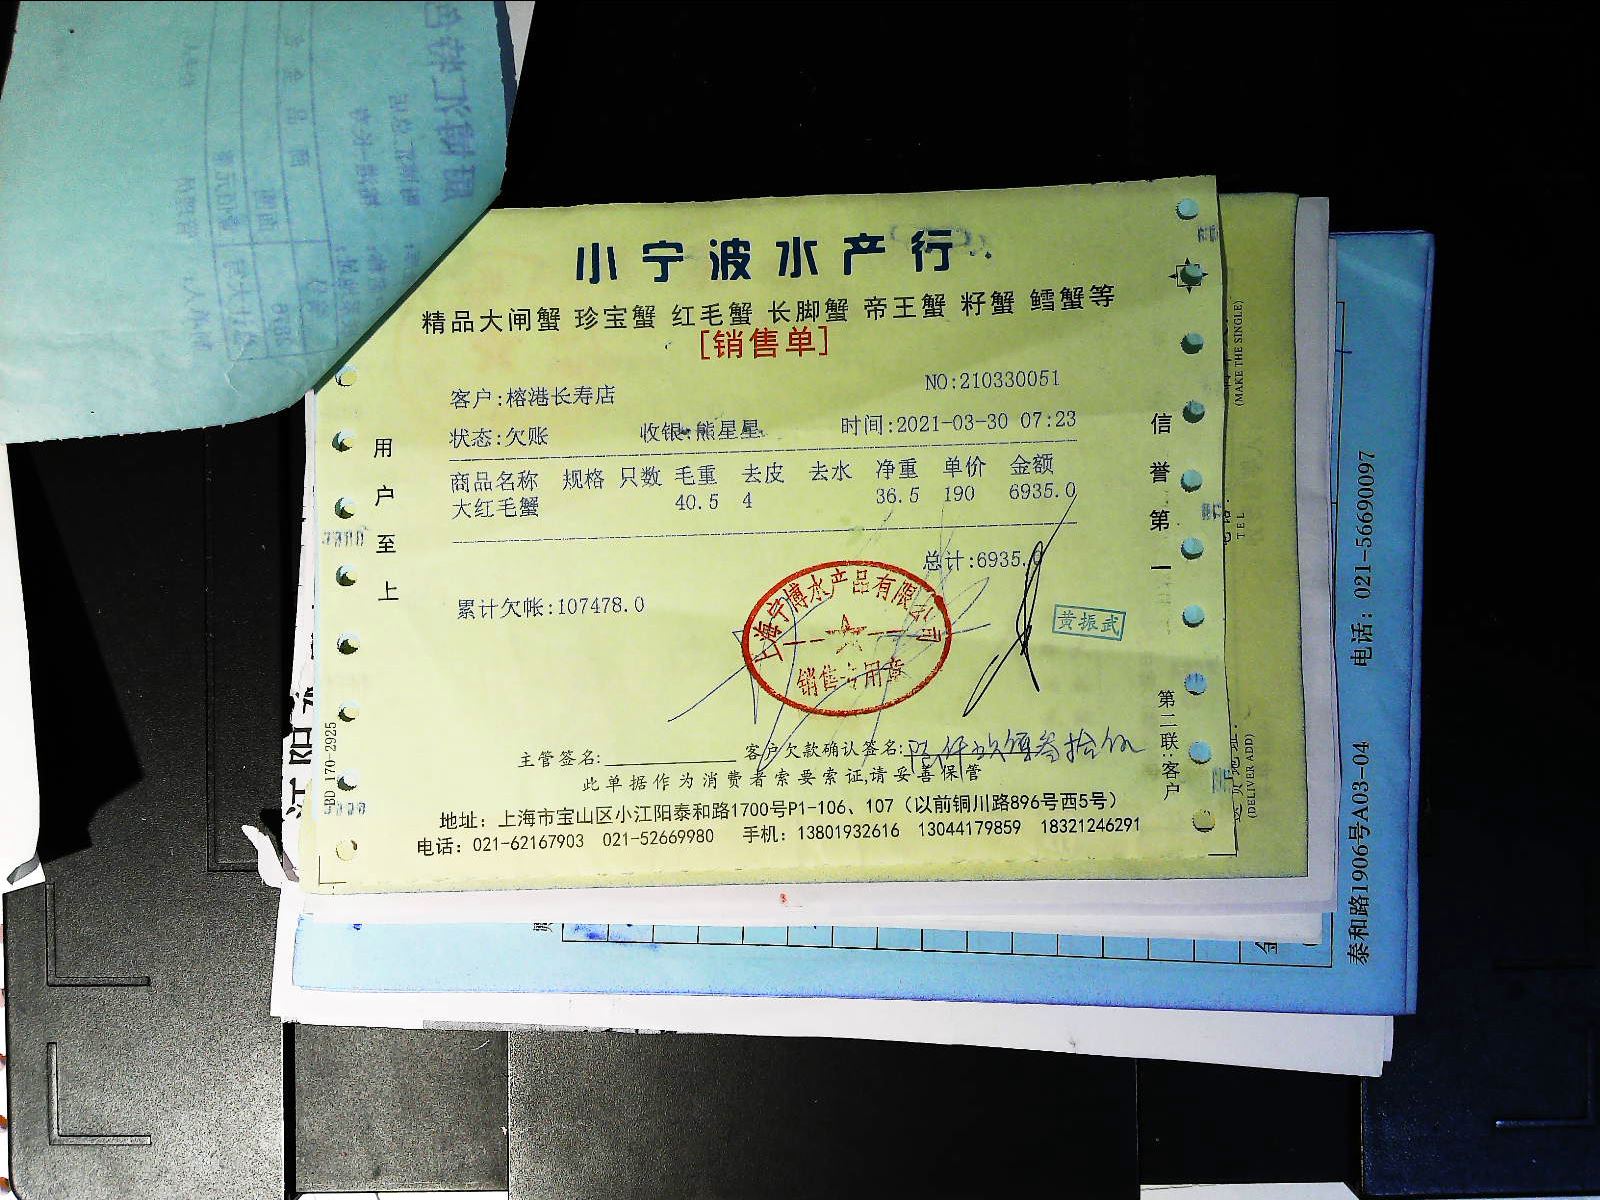 小宁波水产行
精品大闸蟹 珍宝蟹 红毛蟹 长脚蟹 帝王蟹 籽蟹 鳕蟹等
[销售单]
客户:榕港长寿店
NO:210330051
状态:欠账 收银:熊星星 时间:2021-03-30 07:23
商品名称 规格 只数 毛重 去皮 去水 净重 单价 金额
大红毛蟹 40.5 4 36.5 190 6935.0
总计:6935.0
累计欠帐:107478.0
上海宁博水产品有限公司
销售专用章
黄振武
主管签名: 客户欠款确认签名:陆仟玖佰叁拾伍
此单据作为消费者索要索证,请妥善保管
地址: 上海市宝山区小江阳泰和路1700号P1-106、107 (以前铜川路896号西5号)
电话: 021-62167903 021-52669980 手机: 13801932616 13044179859 18321246291
用户至上
信誉第一
第二联:客户
BD 170-2925
(MAKE THE SINGLE)
TEL
(DELIVER ADD)
泰和路1906号A03-04 电话: 021-56690097